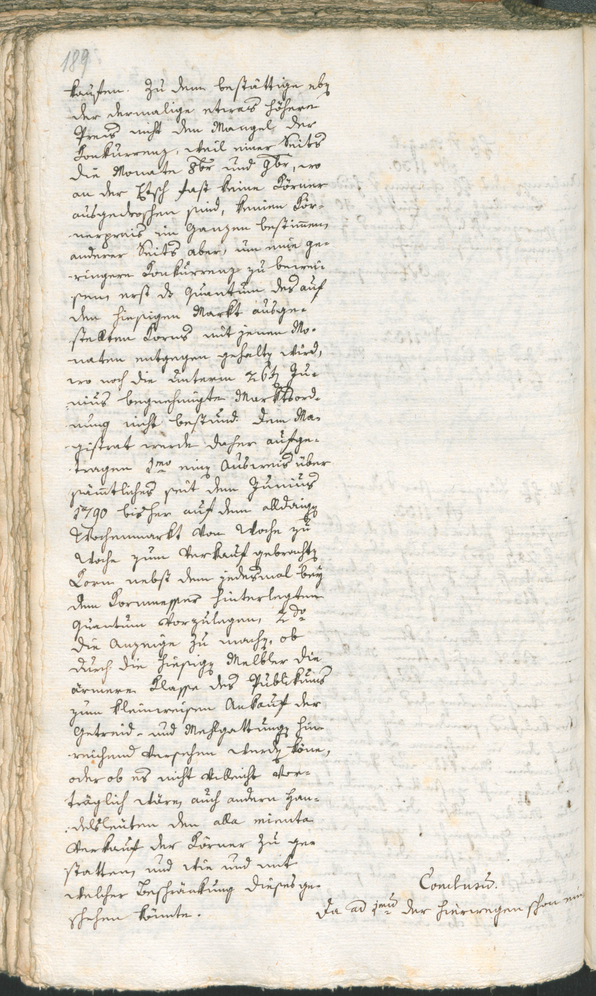 189.
kaufen. Zu dem bestättige
der dermalige etwas höhere
Preis nicht den Mangel der
Konkurrenz, weil einer Seits
die Monate 8br und 9br, wo
an der Etsch fast keine Körner
ausgedroschen sind, keinen Kör-
nerpreis im Ganzen bestimmen,
anderer Seits aber, um eine ge-
ringere Konkurrenz zu bewei-
sen, erst das Quantum des auf
den hiesigen Markt ausge-
stellten Korns mit jenen Mo-
naten entgegen gehalten wird,
wo noch die unterm 26ten Ju-
nius begnehmigte Marktsord-
nung nicht bestund. Dem Ma-
gistrat werde daher aufge-
tragen 1mo einen Ausweis über
sämmtliches seit dem Junius
1790 bisher auf dem alldaigen
Wochenmarkt von Woche zu
Woche zum Verkauf gebrachten
Korn nebst dem jedesmal bey
dem Kornmesser hinterlegten
Quantum vorzulegen, 2do
die Anzeige zu machen, ob
durch die hiesigen Melbler die
ärmere Klasse des Publikums
zum kleinweisen Ankauf der
Getreid- und Mehlgattungen hin-
reichend versehen werden köne,
oder ob es nicht vielleicht vor-
träglich wäre, auch andern Han-
delsleuten den alla minuta
Verkauf der Körner zu ge-
statten, und wie und mit
welcher Beschränkung dieses ge-
schehen könnte.
Conclusum.
Da ad 1mum der hierwegen schon